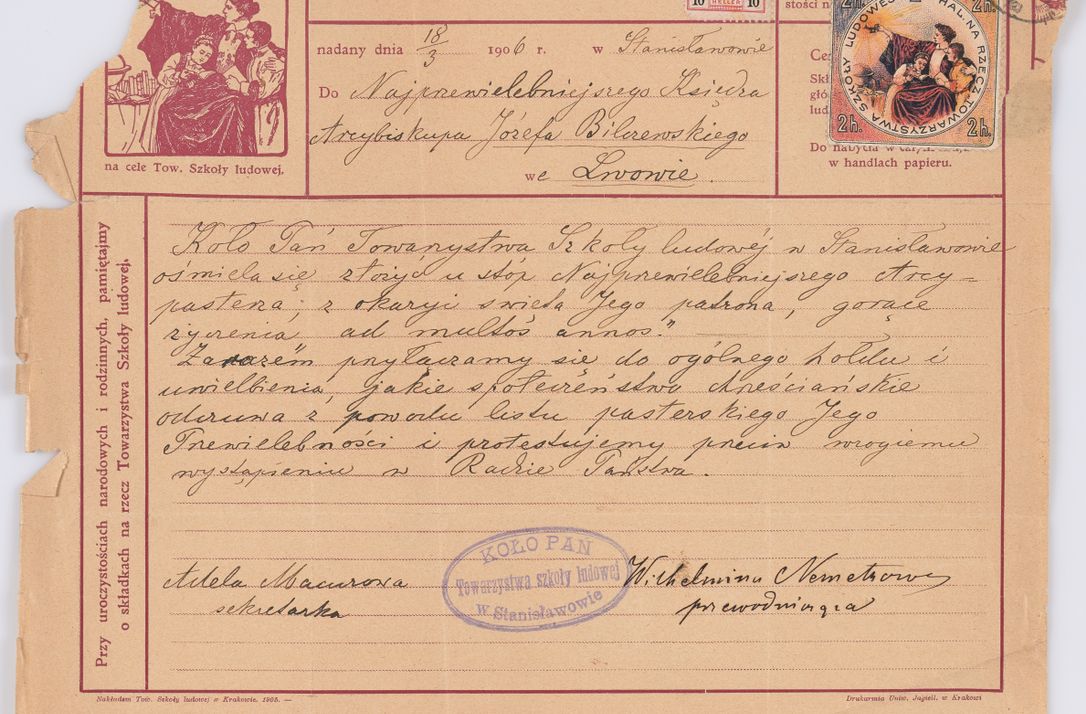 10 HELLER 10
stości n
2h. 2h.
SZKOŁY LUDOWEJ HAL. NA RZECZ TOWARZYSTWA
2h. 2h.
nadany dnia 18/3 1906 r. w Stanisławowie
Do Najprzewielebniejszego Księdza
Arcybiskupa Józefa Bilczewskiego
we Lwowie.
Ce
Skł
głó
lud
Do nabycia w
w handlach papieru.
na cele Tow. Szkoły ludowej.
Przy uroczystościach narodowych i rodzinnych, pamiętajmy
o składkach na rzecz Towarzystwa Szkoły ludowej.
Koło Pań Towarzystwa Szkoły ludowéj w Stanisławowie
ośmiela się złożyć u stóp Najprzewielebniejszego Arcy-
pasterza, z okazyi święta Jego patrona, gorące
życzenia „ad multos annos."
Zarazem przyłączamy się do ogólnego hołdu i
uwielbienia, jakie społeczeństwo chrześciańskie
odczuwa z powodu listu pasterskiego Jego
Przewielebności i protestujemy przeciw wrogiemu
wystąpieniu w Radzie Państwa.
KOŁO PAN
Towarzystwa szkoły ludowej
w Stanisławowie
Adela Mazurowa
sekretarka
Wilhelmina Nemetzowa
przewodnicząca
Nakładem Tow. Szkoły ludowej w Krakowie, 1905. —
Drukarnia Uniw. Jagiell. w Krakowi